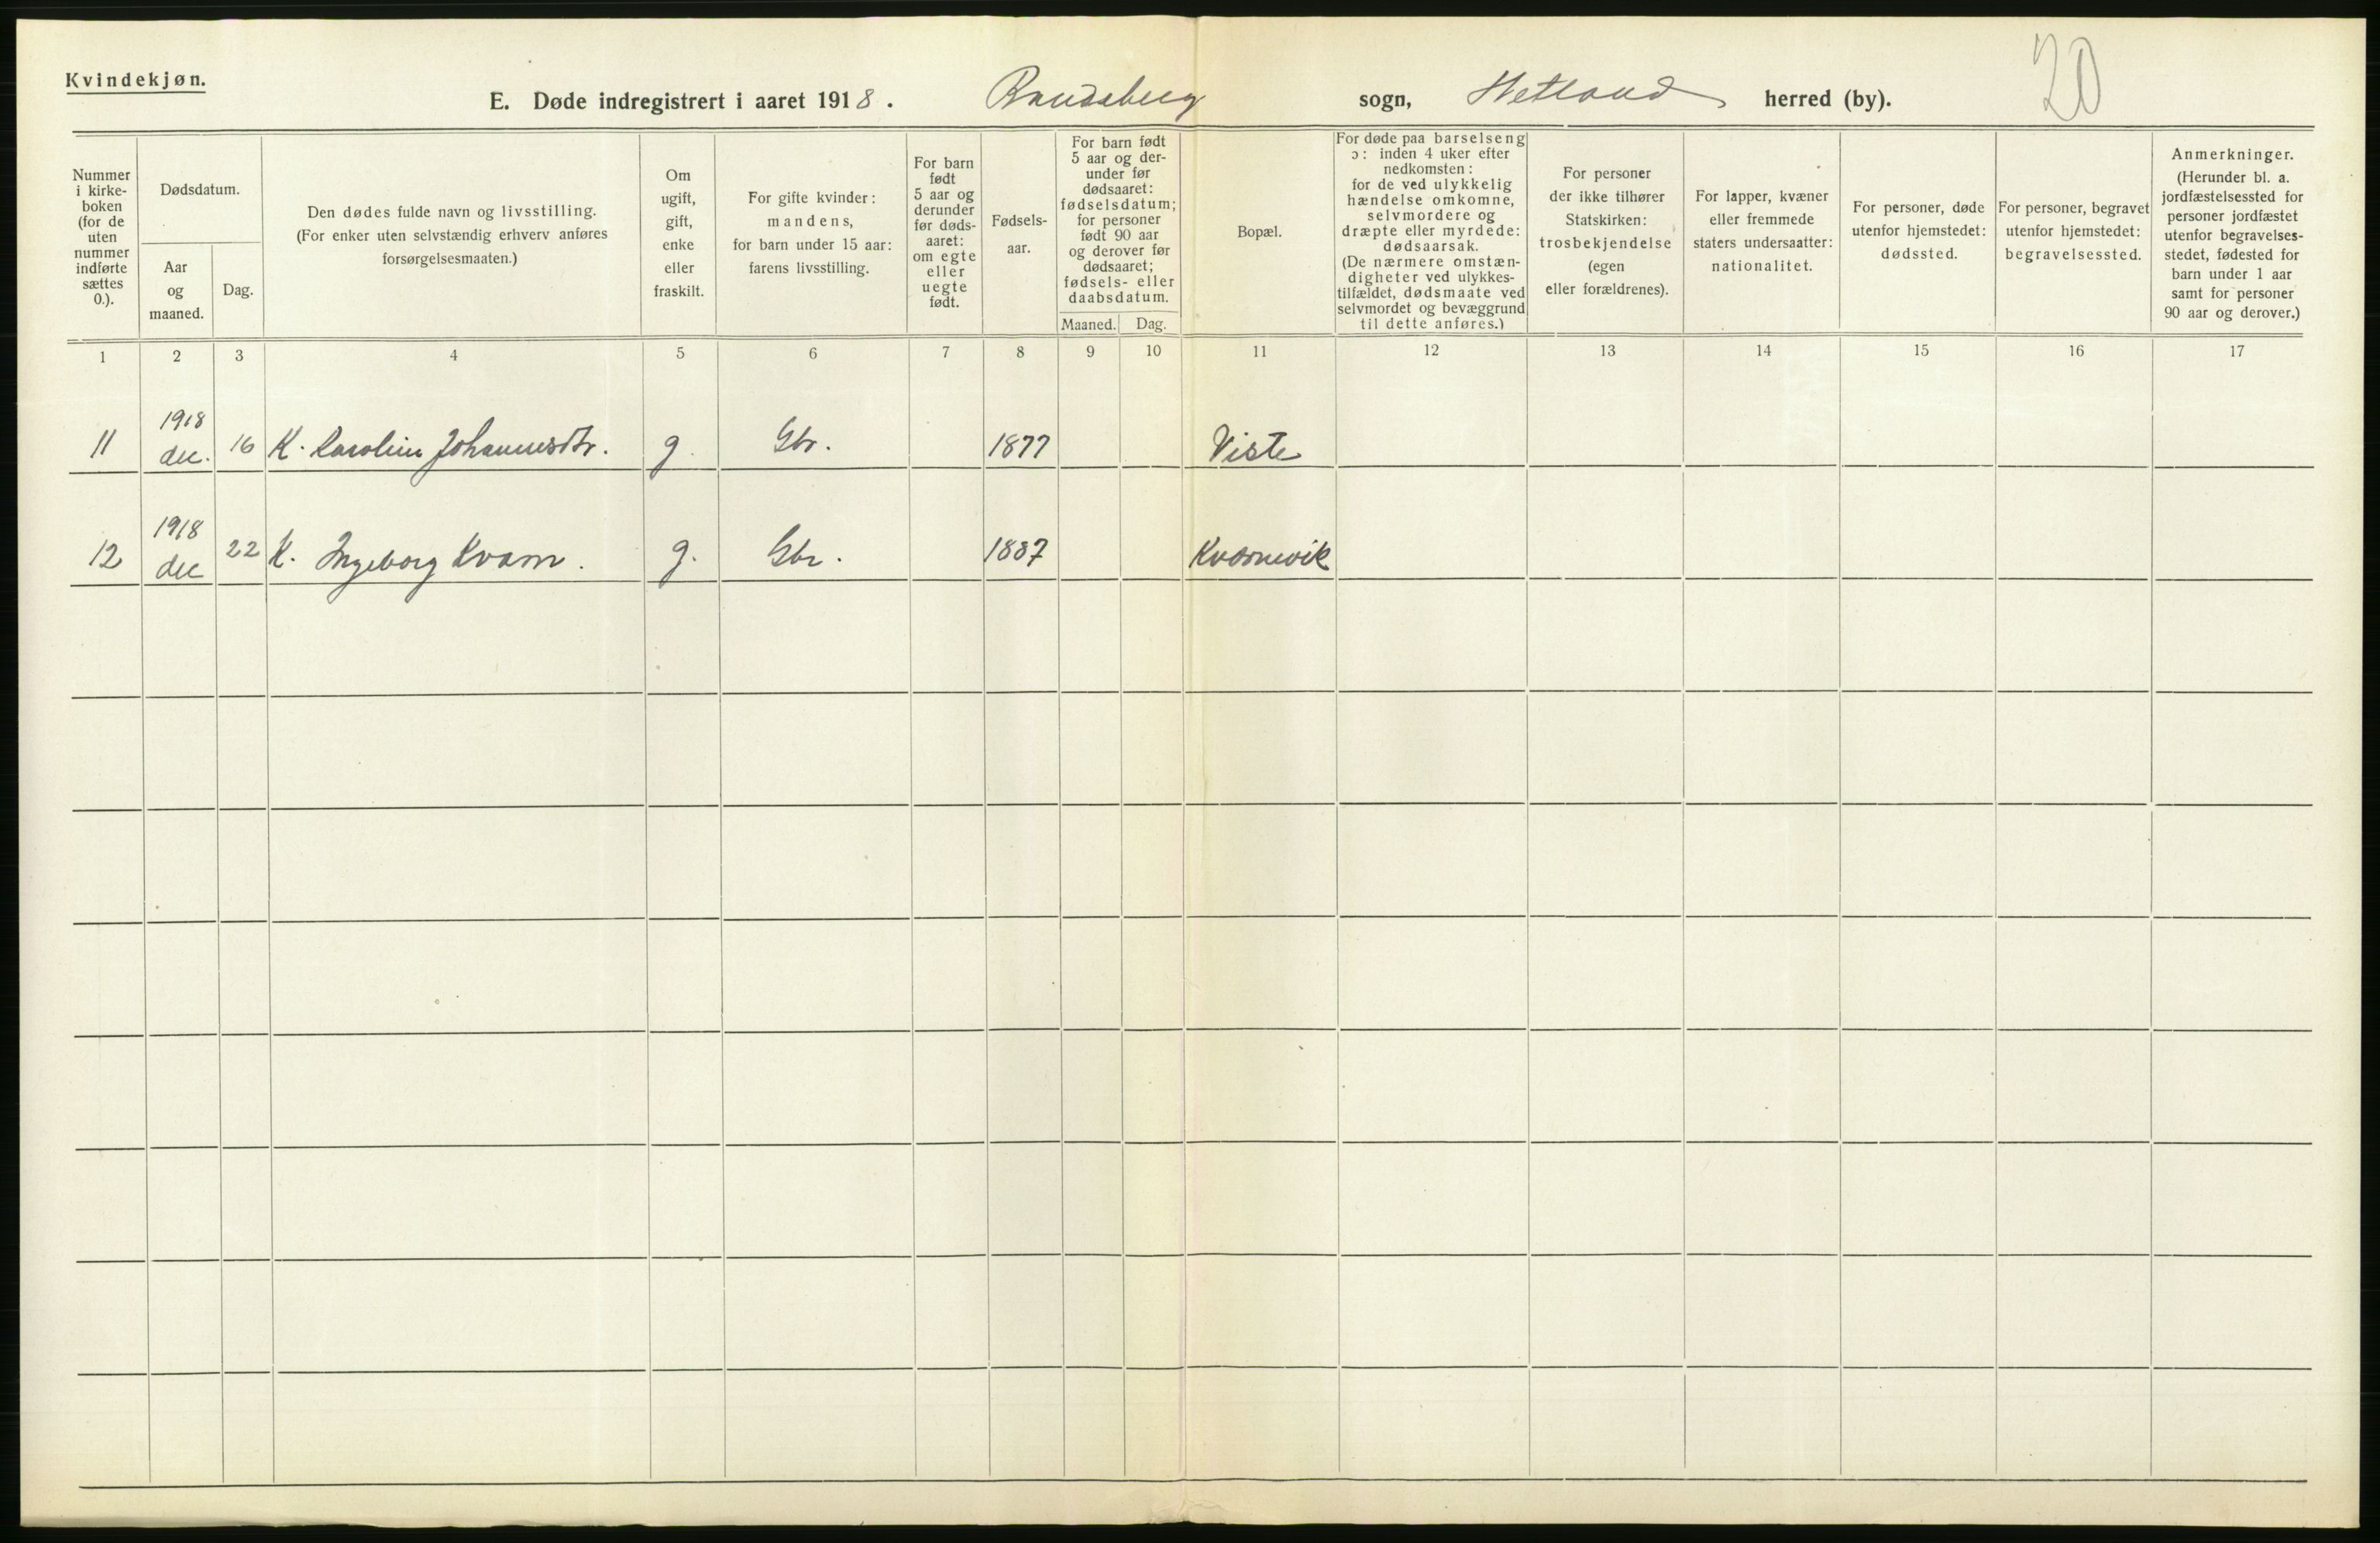 Kvindekjøn.
20
E. Døde indregistrert i aaret 1918. Randaberg sogn, Hetland herred (by).
Nummer
i kirke-
boken
(for de
uten
nummer
indførte
sættes
0.).
Dødsdatum.
Aar
og
maaned.
Dag.
Den dødes fulde navn og livsstilling.
(For enker uten selvstændig erhverv anføres
forsørgelsesmaaten.)
Om
ugift,
gift,
enke
eller
fraskilt.
For gifte kvinder:
mandens,
for barn under 15 aar:
farens livsstilling.
For barn
født
5 aar og
derunder
før døds-
aaret:
om egte
eller
uegte
født.
Fødsels-
aar.
For barn født
5 aar og der-
under før
dødsaaret:
fødselsdatum;
for personer
født 90 aar
og derover før
dødsaaret;
fødsels- eller
daabsdatum.
Maaned.
Dag.
Bopæl.
For døde paa barselseng
ɔ: inden 4 uker efter
nedkomsten:
for de ved ulykkelig
hændelse omkomne,
selvmordere og
dræpte eller myrdede:
dødsaarsak.
(De nærmere omstæn-
digheter ved ulykkes-
tilfældet, dødsmaate ved
selvmordet og bevæggrund
til dette anføres.)
For personer
der ikke tilhører
Statskirken:
trosbekjendelse
(egen
eller forældrenes).
For lapper, kvæner
eller fremmede
staters undersaatter:
nationalitet.
For personer, døde
utenfor hjemstedet:
dødssted.
For personer, begravet
utenfor hjemstedet:
begravelsessted.
Anmerkninger.
(Herunder bl. a.
jordfæstelsessted for
personer jordfæstet
utenfor begravelses-
stedet, fødested for
barn under 1 aar
samt for personer
90 aar og derover.)
1 2 3 4 5 6 7 8 9 10 11 12 13 14 15 16 17
11 1918 dec. 16 K. Karoline Johannesdtr. g. Gbr. 1877 Viste
12 1918 dec 22 K. Ingeborg Kvam. g. Gbr. 1887 Kværnevik